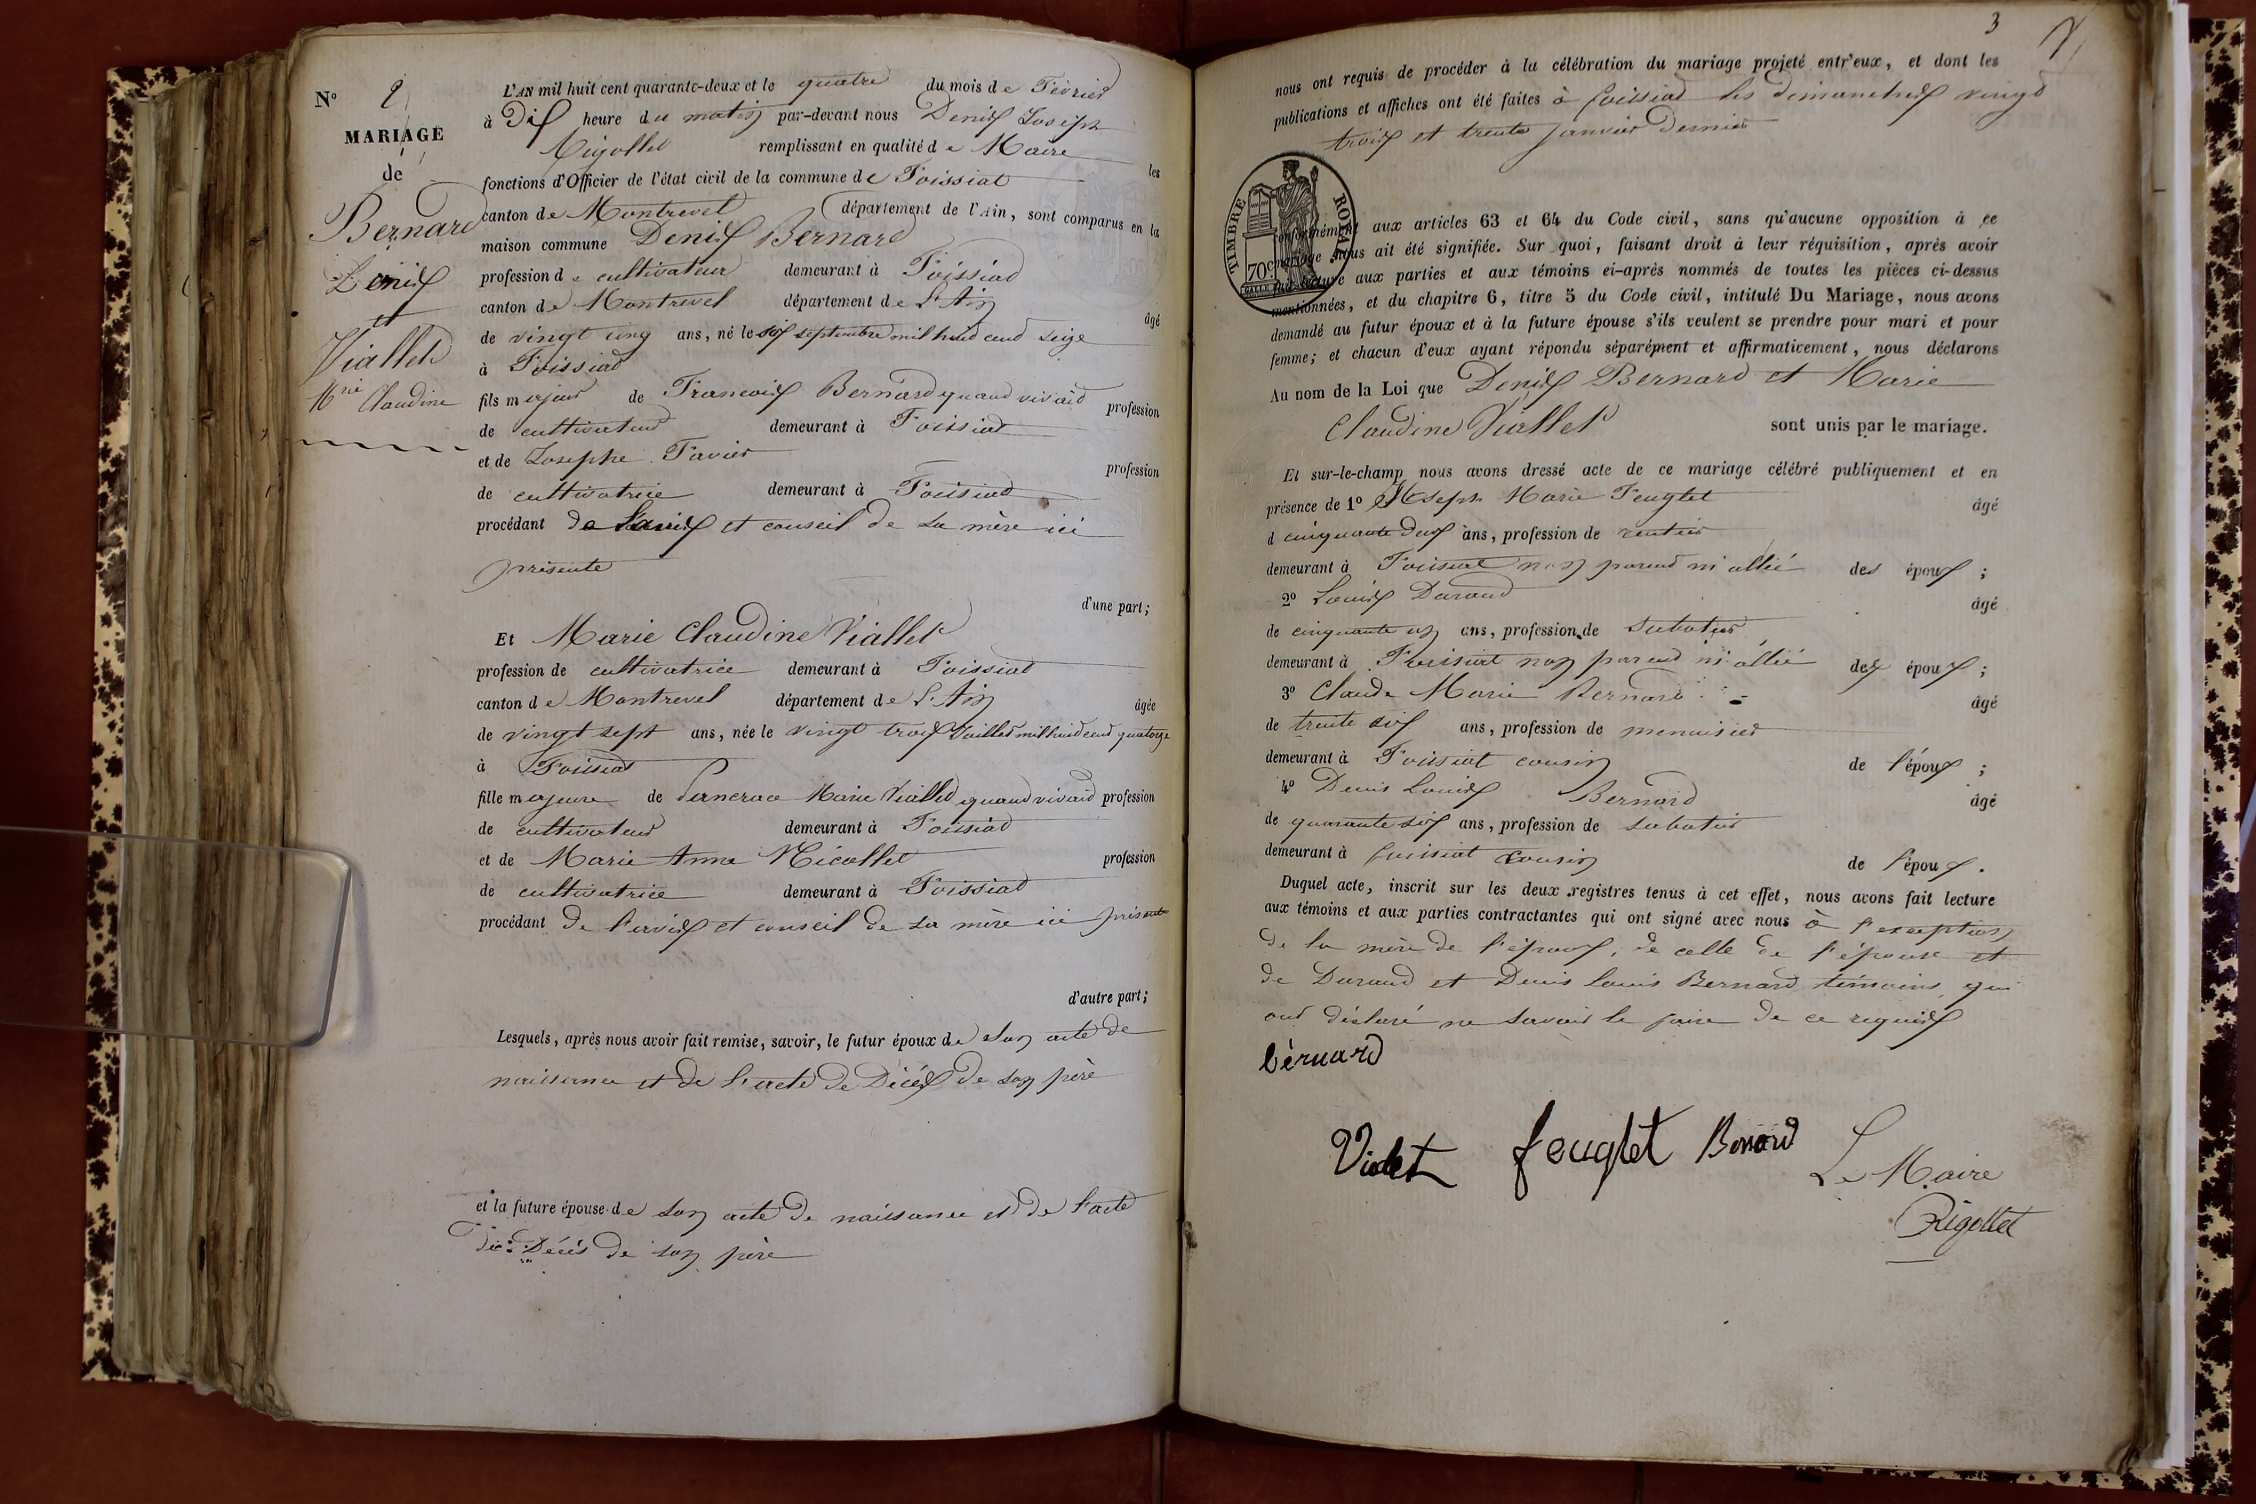 N° 2
MARIAGE
de
Bernard
Denis
et
Viallet
Mrie Claudine
L'AN mil huit cent quarante-deux et le quatre du mois de Février
à Dix heure du matin par-devant nous Denis Joseph
Rigollet remplissant en qualité de Maire les
fonctions d'Officier de l'état civil de la commune de Foissiat
canton de Montrevel département de l'Ain, sont comparus en la
maison commune Denis Bernard
profession de cultivateur demeurant à Foissiat
canton de Montrevel département de L'Ain âgé
de vingt cinq ans, né le six septembre mil huit cent seize
à Foissiat
fils majeur de Francois Bernard quand vivait profession
de cultivateur demeurant à Foissiat
et de Josephe Favier profession
de cultivatrice demeurant à Foissiat
procédant de l'avis et conseil de sa mère ici
présente
d'une part;
Et Marie Claudine Viallet
profession de cultivatrice demeurant à Foissiat
canton de Montrevel département de L'Ain âgée
de vingt sept ans, née le vingt trois Juillet mil huit cent quatorze
à Foissiat
fille majeure de Marie Viallet quand vivait profession
de cultivateur demeurant à Foissiat
et de Marie Anne Nicollet profession
de cultivatrice demeurant à Foissiat
procédant de l'avis et conseil de sa mère ici présente
d'autre part;
Lesquels, après nous avoir fait remise, savoir, le futur époux de son acte de
naissance et de l'acte de Décès de son père
et la future épouse de son acte de naissance et de l'acte
de Décès de son père
3
nous ont requis de procéder à la célébration du mariage projeté entr'eux, et dont les
publications et affiches ont été faites à foissiat les dimanches vingt
trois et trente janvier dernier
TIMBRE ROYAL
70c
conformément aux articles 63 et 64 du Code civil, sans qu'aucune opposition à ce
mariage nous ait été signifiée. Sur quoi, faisant droit à leur réquisition, après avoir
fait lecture aux parties et aux témoins ci-après nommés de toutes les pièces ci-dessus
mentionnées, et du chapitre 6, titre 5 du Code civil, intitulé Du Mariage, nous avons
demandé au futur époux et à la future épouse s'ils veulent se prendre pour mari et pour
femme; et chacun d'eux ayant répondu séparément et affirmativement, nous déclarons
Au nom de la Loi que Denis Bernard et Marie
Claudine Viallet sont unis par le mariage.
Et sur-le-champ nous avons dressé acte de ce mariage célébré publiquement et en
présence de 1° Joseph Marie Feuglet âgé
d cinquante deux ans, profession de rentier
demeurant à Foissiat non parent ni allié des époux ;
2° Louis Durand âgé
de cinquante un ans, profession de sabotier
demeurant à Foissiat non parent ni allié des époux ;
3° Claude Marie Bernard âgé
de trente six ans, profession de menuisier
demeurant à Foissiat cousin de l'époux ;
4° Denis Louis Bernard âgé
de quarante six ans, profession de sabotier
demeurant à foissiat cousin de l'époux .
Duquel acte, inscrit sur les deux registres tenus à cet effet, nous avons fait lecture
aux témoins et aux parties contractantes qui ont signé avec nous à l'exception
de la mère de l'époux, de celle de l'épouse et
de Durand et Denis Louis Bernard témoins qui
ont déclaré ne savoir le faire de ce requis
bérnard
Violet feuglet Bernard
Le Maire
Rigollet